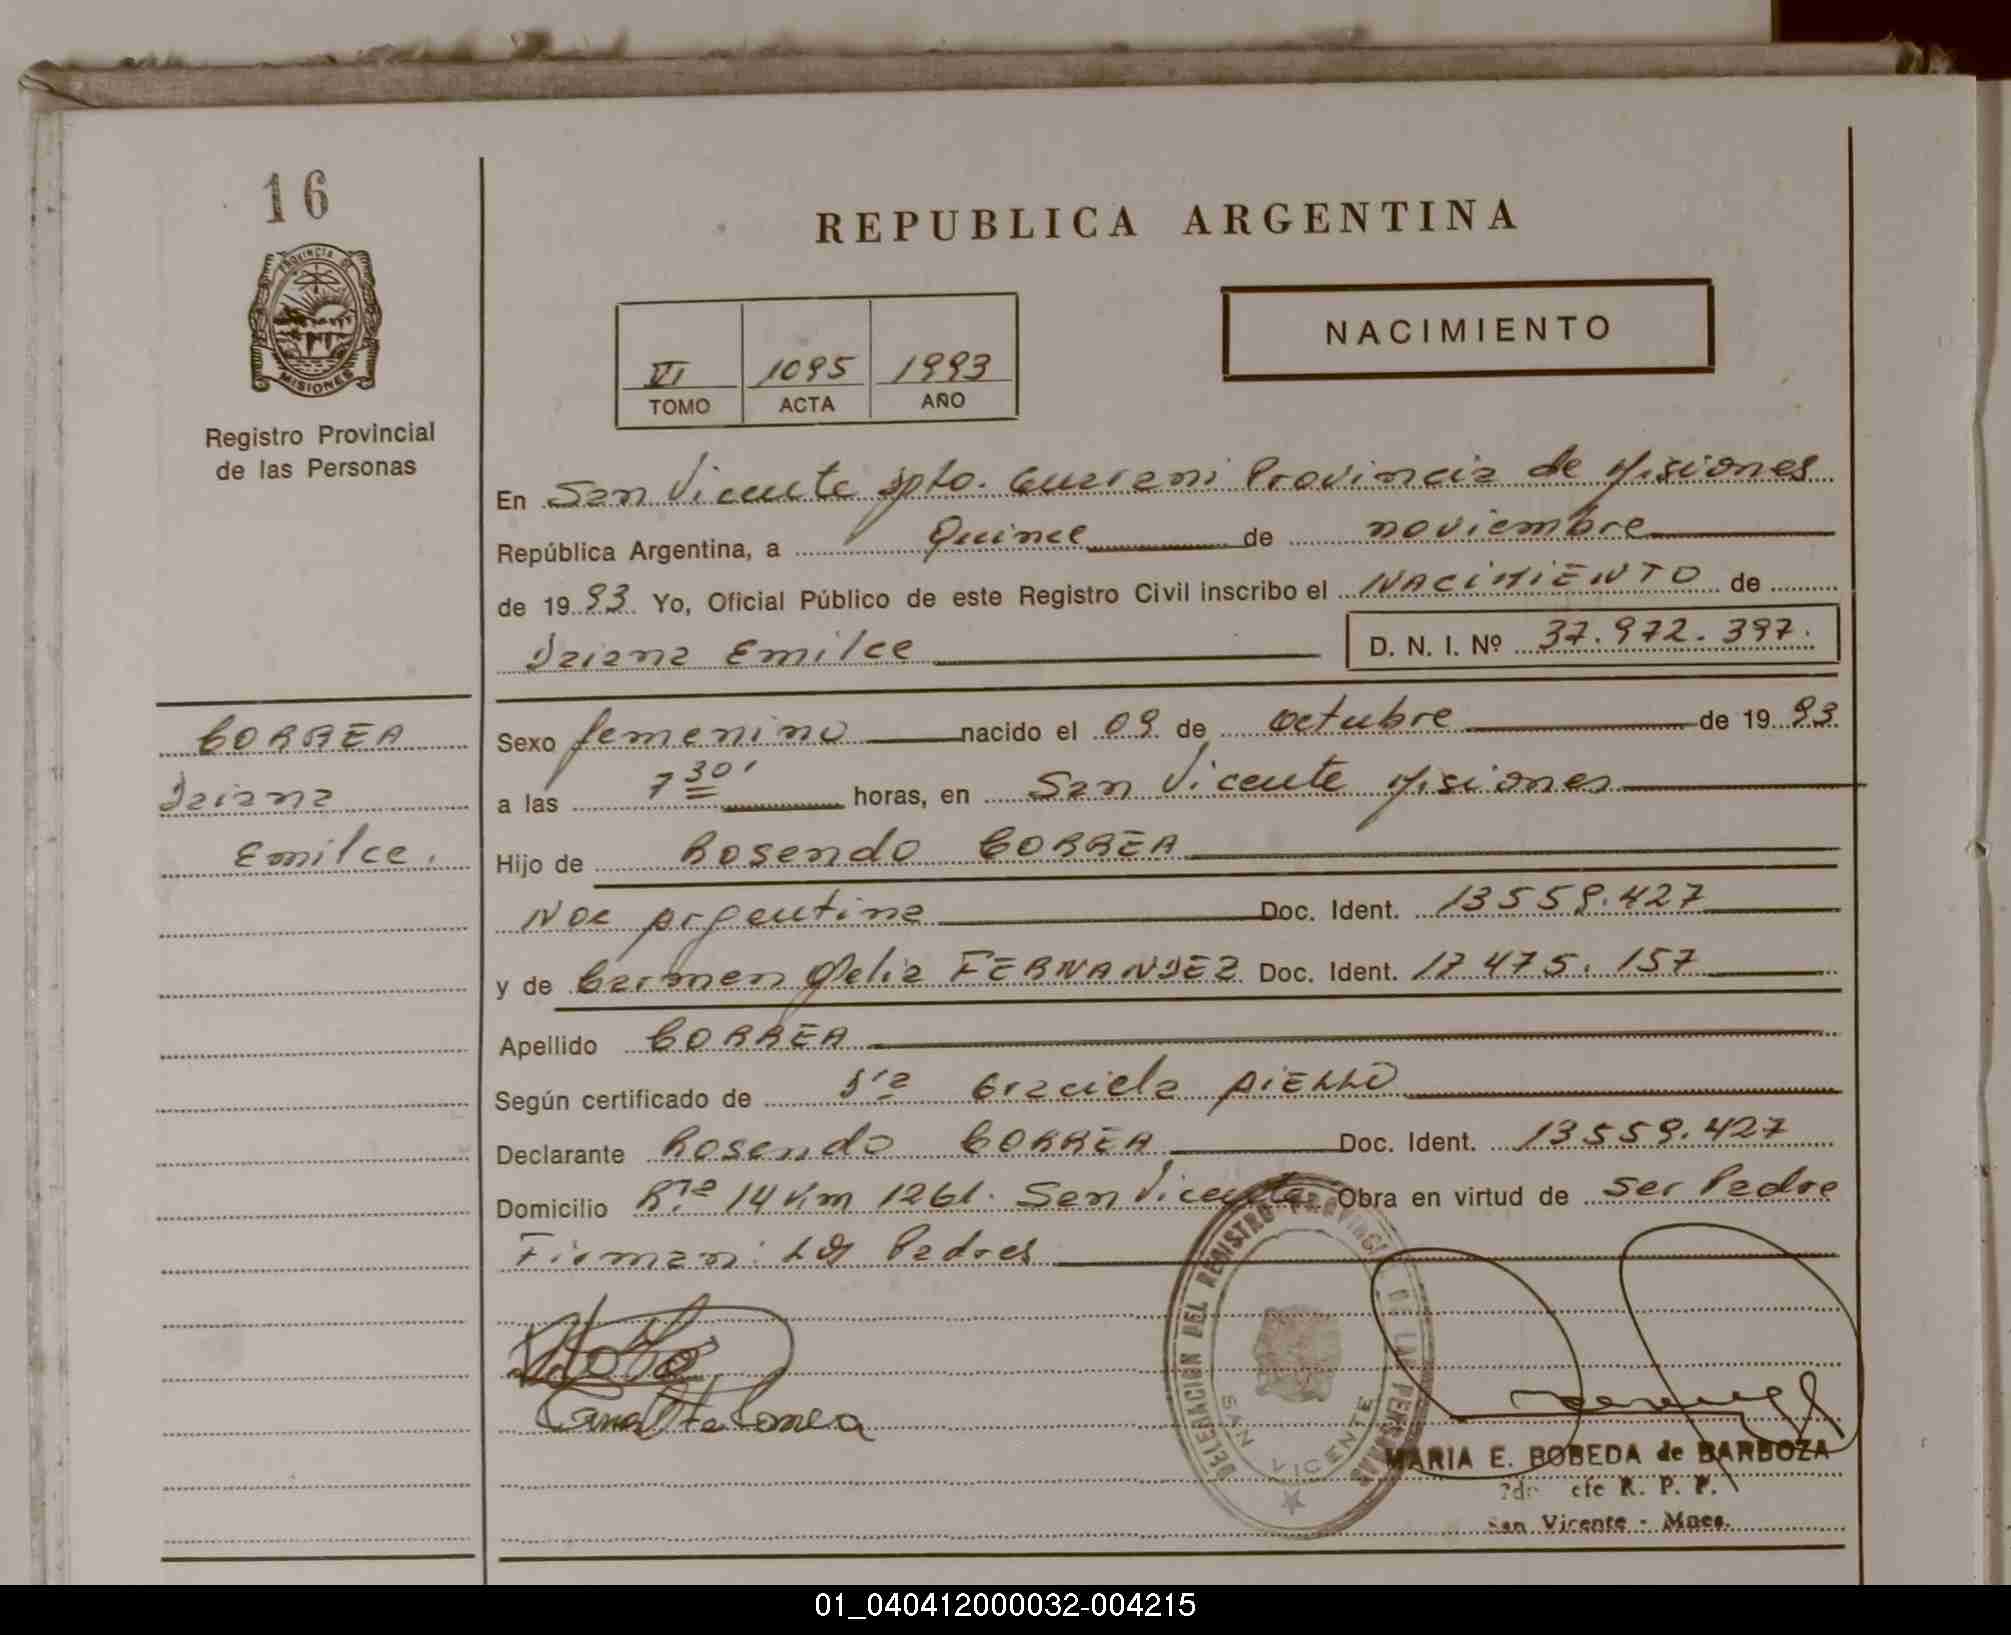 16
REPUBLICA ARGENTINA
PROVINCIA DE
MISIONES
Registro Provincial
de las Personas
NACIMIENTO
VI 1095 1993
TOMO ACTA AÑO
En San Vicente Dpto. Guarani Provincia de Misiones
República Argentina, a Quince de noviembre
de 1993 Yo, Oficial Público de este Registro Civil inscribo el NACIMIENTO de
Daiana Emilce D. N. I. Nº 37.972.397.
CORREA
Daiana
Emilce.
Sexo femenino nacido el 09 de octubre de 1993
a las 7 30' horas, en San Vicente Misiones
Hijo de Rosendo CORREA
Nac Argentina Doc. Ident. 13559.427
y de Carmen Delia FERNANDEZ Doc. Ident. 17475.157
Apellido CORREA
Según certificado de Dra Graciela AIELLO
Declarante Rosendo CORREA Doc. Ident. 13559.427
Domicilio Rta 14 Km 1261. San Vicente Obra en virtud de ser Padre
Firman: Los Padres
DELEGACION DEL REGISTRO PROVINCIAL DE LAS PERSONAS
SAN VICENTE
MARIA E. BOBEDA de BARBOZA
R. P. P.
San Vicente - Mnes.
01_040412000032-004215